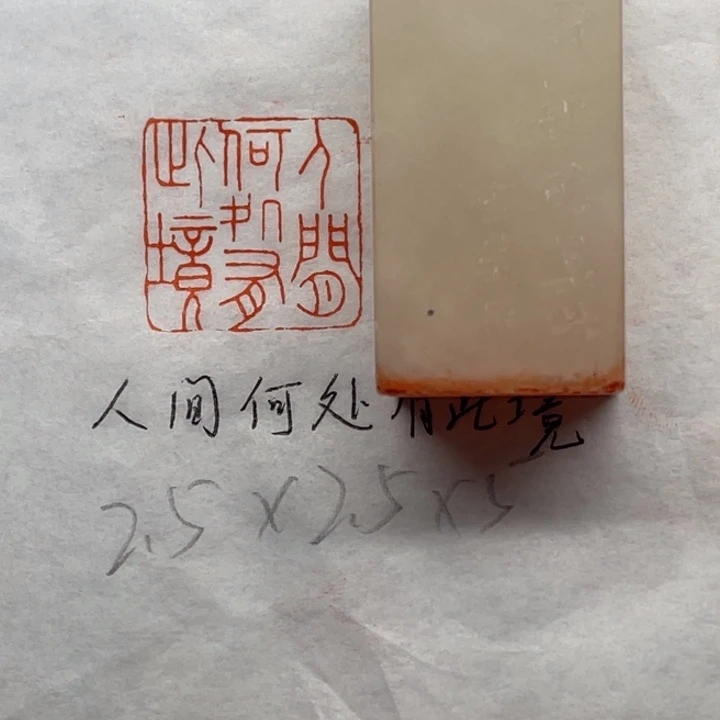 人間
何処有
此境
人间何处有此境
2.5×2.5×5